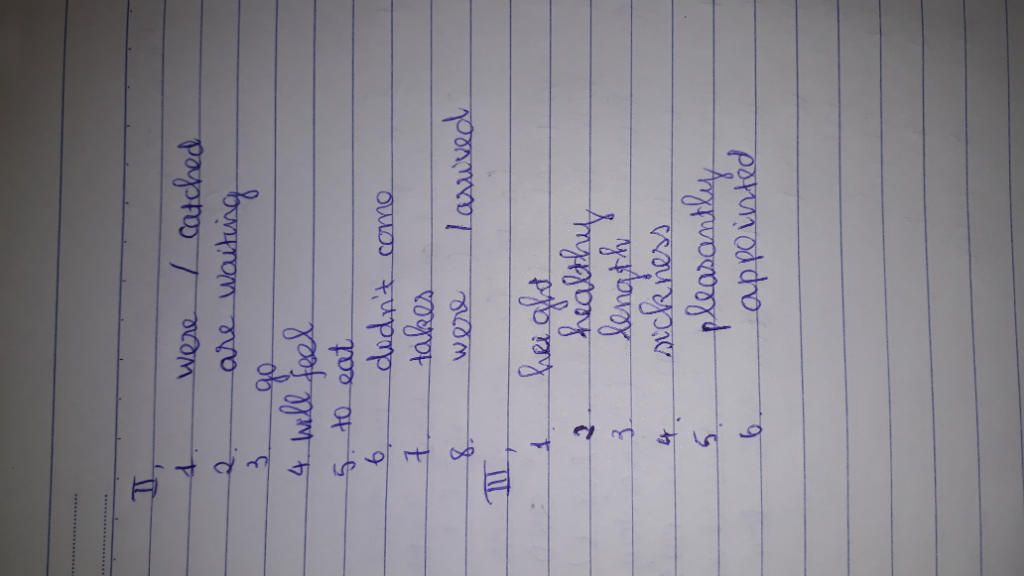 II,
1. were / catched
2. are waiting
3. go
4. will feel
5. to eat
6. didn't come
7. takes
8. were / arrived
III,
1. height
2. healthy
3. length
4. sickness
5. pleasantly
6. appointed